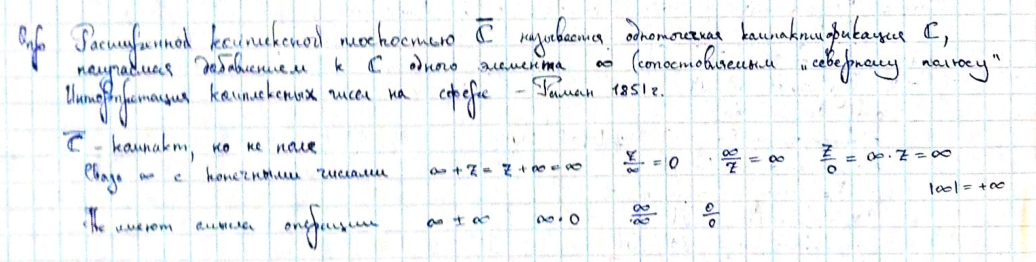 Опр Расширенной комплексной плоскостью C̅ называется одноточечная компактификация C,
получаемая добавлением к C одного элемента ∞ (сопоставляемым „северному полюсу"
Интерпретация комплексных чисел на сфере – Риман 1851г.
C̅ - компакт, но не поле
Связь ∞ с конечными числами ∞ + z = z + ∞ = ∞ z/∞ = 0 ∞/z = ∞ z/0 = ∞ · z = ∞
|∞| = +∞
Не имеют смысла операции ∞ ± ∞ ∞ · 0 ∞/∞ 0/0